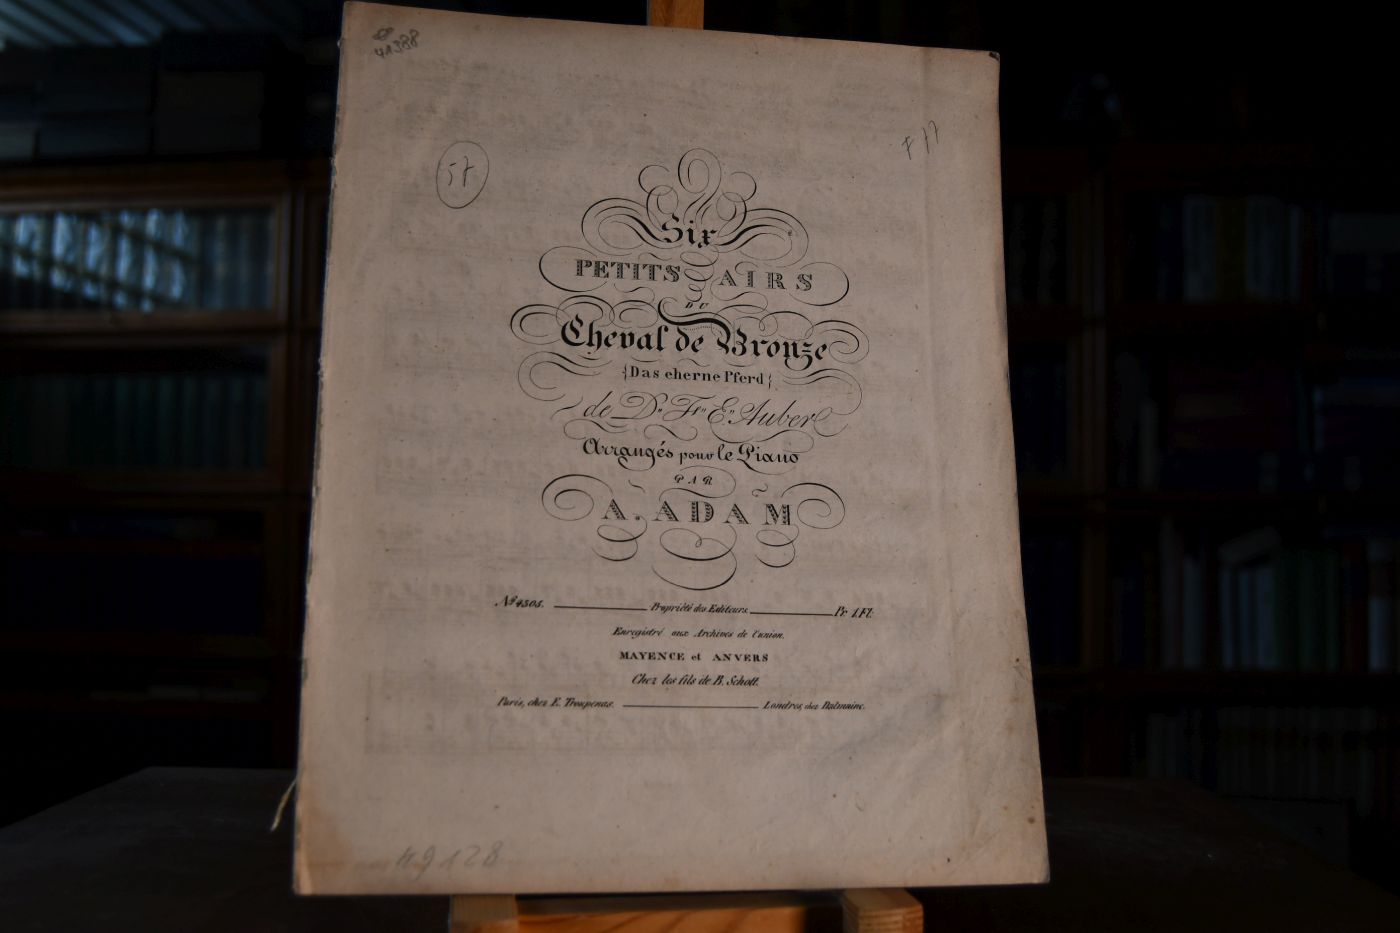 41388
57
F 17
Six
PETITS AIRS
DU
Cheval de Bronze
(Das eherne Pferd)
de D.n F.n E.n Auber
Arrangés pour le Piano
PAR
A. ADAM
No. 4305. Propriété des Editeurs. Pr. 1 Fl.
Enregistré aux Archives de l'union.
MAYENCE et ANVERS
Chez les fils de B. Schott.
Paris, chez E. Troupenas. Londres, chez Dalmaine.
49128